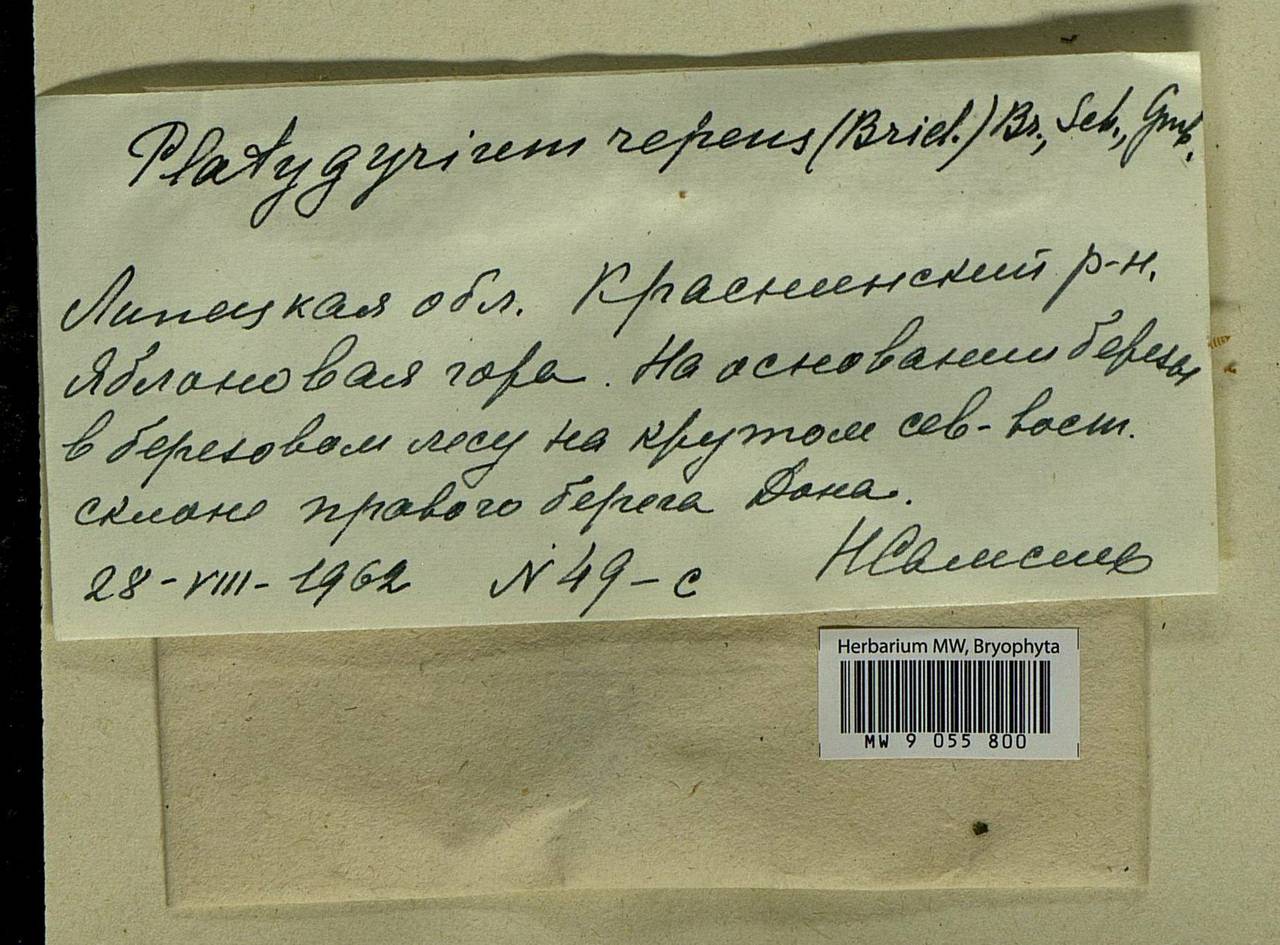 Platygyrium repens (Brid.) Br., Sch., Gmb.
Липецкая обл. Краснинский р-н.
Яблоновая гора. На основании березы
в березовом лесу на крутом сев-вост.
склоне правого берега Дона.
28-VIII-1962 N 49-c
Herbarium MW, Bryophyta
MW 9 055 800